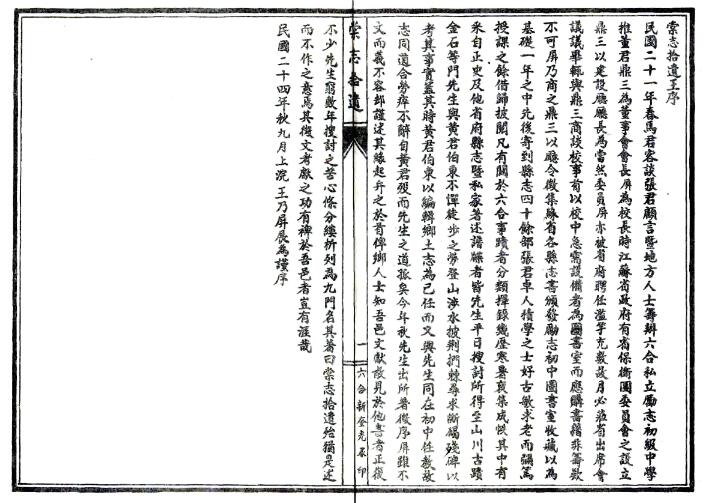 棠志拾遺王序
民國二十一年春馬君容談張君顧言暨地方人士籌辦六合私立勵志初級中學
推董君鼎三為董事會會長屏為校長時江蘇省政府有省保衛團委員會之設立
鼎三以建設廳廳長為當然委員屏亦被省府聘任濫竽充數故月必蒞省出席會
議議畢輒與鼎三商談校事有以校中急需設備者為圖書室而應購書籍非籌欵
不可屏乃商之鼎三以廳令徵集蘇省各縣志書頒發勵志初中圖書室收藏以為
基礎一年之中先後寄到縣志四十餘部張君卓人積學之士好古敏求老而彌篤
授課之餘借歸披閱凡有關於六合事蹟者分類擇錄幾歷寒暑裒集成帙其中有
采自正史及他省府縣志暨私家著述譜牒者皆先生平日搜討所得至山川古蹟
金石等門先生與黃君伯東不憚徒步之勞登山涉水披荆捫棘尋求斷碣殘碑以
考其事實蓋其時黃君伯東以編輯鄉土志為己任而又與先生同在初中任教故
志同道合勞瘁不辭自黃君歿而先生之道孤矣今年秋先生出所著徵序屏雖不
文而義不容卻謹述其緣起弁之於首俾鄉人士知吾邑文獻散見於他書者正復
棠志拾遺
一
六合新金光采印
不少先生窮數年搜討之苦心條分縷析列為九門名其著曰棠志拾遺殆猶是述
而不作之意焉其徵文考獻之功有裨於吾邑者豈有涯哉
民國二十四年秋九月上浣王乃屏辰為謹序